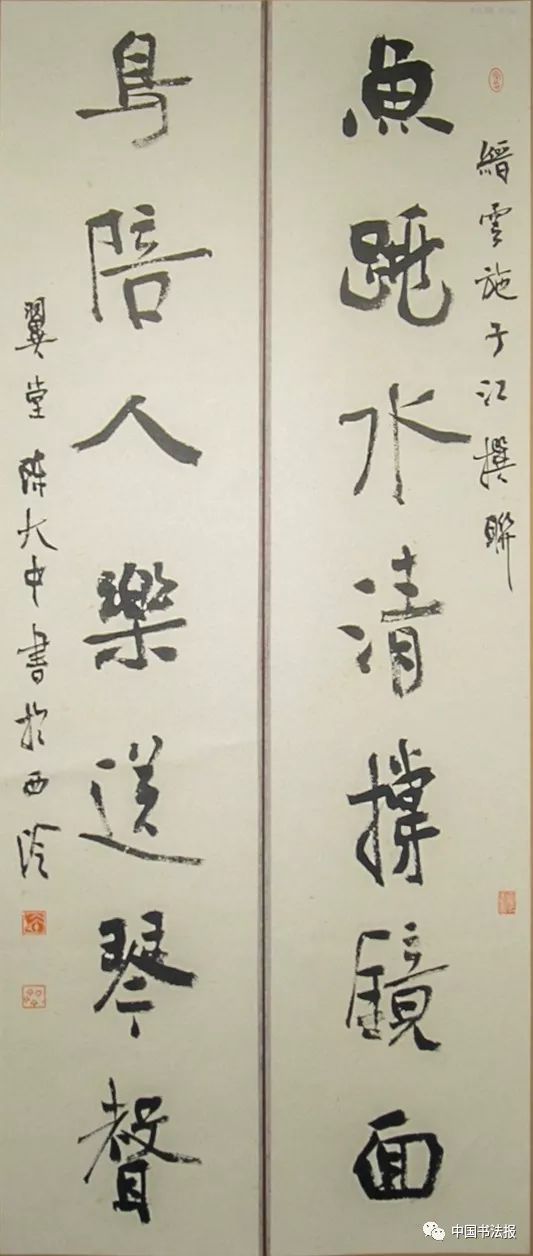 縉雲施子江撰聯
魚跳水清撐鏡面
鳥陪人樂送琴聲
翼堂陳大中書於西泠
中国书法报